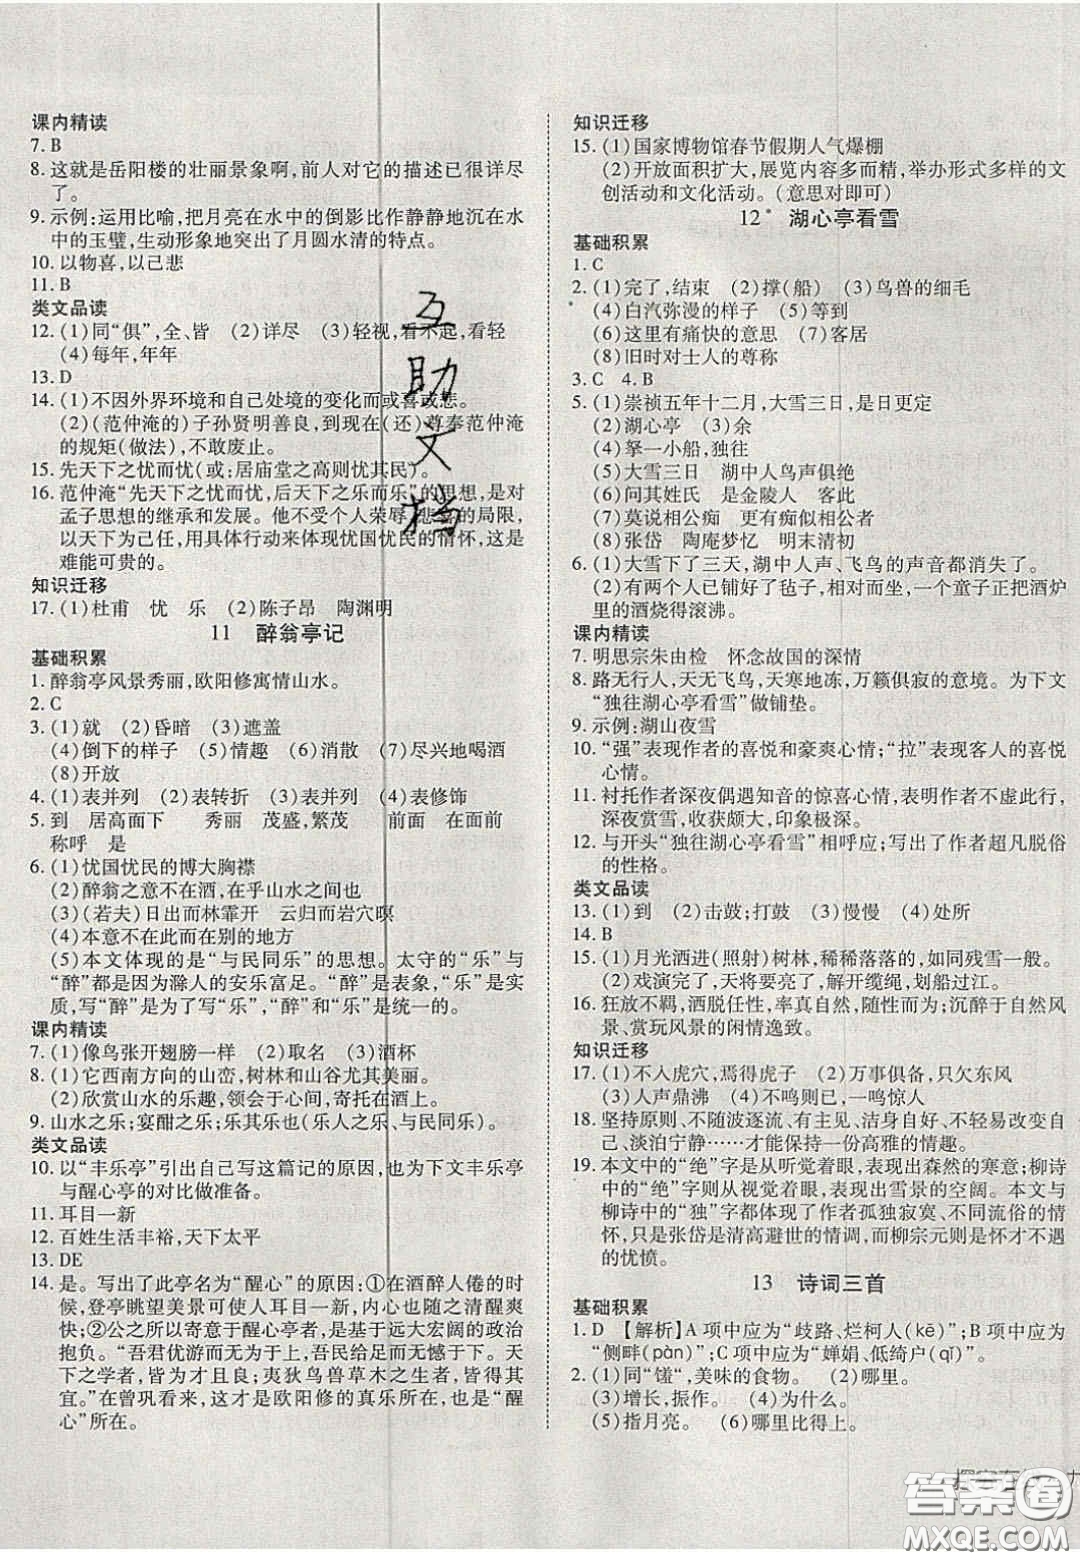 课内精读
7. B
8. 这就是岳阳楼的壮丽景象啊,前人对它的描述已很详尽
了。
9. 示例:运用比喻,把月亮在水中的倒影比作静静地沉在水
中的玉璧,生动形象地突出了月圆水清的特点。
10. 以物喜,以己悲
11. B
类文品读
12. (1)同“俱”,全、皆 (2)详尽 (3)轻视,看不起,看轻
(4)每年,年年
13. D
14. (1)不因外界环境和自己处境的变化而或喜或悲。
(2)(范仲淹的)子孙贤明善良,到现在(还)尊奉范仲淹
的规矩(做法),不敢废止。
15. 先天下之忧而忧(或:居庙堂之高则忧其民)。
16. 范仲淹“先天下之忧而忧,后天下之乐而乐”的思想,是对
孟子思想的继承和发展。他不受个人荣辱、悲喜的局限,
以天下为己任,用具体行动来体现忧国忧民的情怀,这是
难能可贵的。
知识迁移
17. (1)杜甫 忧 乐 (2)陈子昂 陶渊明
11 醉翁亭记
基础积累
1. 醉翁亭风景秀丽,欧阳修寓情山水。
2. C
3. (1)就 (2)昏暗 (3)遮盖
(4)倒下的样子 (5)情趣 (6)消散 (7)尽兴地喝酒
(8)开放
4. (1)表并列 (2)表转折 (3)表并列 (4)表修饰
5. 到 居高面下 秀丽 茂盛,繁茂 前面 在前面
称呼 是
6. (1)忧国忧民的博大胸襟
(2)醉翁之意不在酒,在乎山水之间也
(3)(若夫)日出而林霏开 云归而岩穴暝
(4)本意不在此而在别的地方
(5)本文体现的是“与民同乐”的思想。太守的“乐”与
“醉”都是因为滁人的安乐富足。“醉”是表象,“乐”是实
质,写“醉”是为了写“乐”,“醉”和“乐”是统一的。
课内精读
7. (1)像鸟张开翅膀一样 (2)取名 (3)酒杯
8. (1)它西南方向的山峦,树林和山谷尤其美丽。
(2)欣赏山水的乐趣,领会于心间,寄托在酒上。
9. 山水之乐;宴酣之乐;乐其乐也(乐人之乐、与民同乐)。
类文品读
10. 以“丰乐亭”引出自己写这篇记的原因,也为下文丰乐亭
与醒心亭的对比做准备。
11. 耳目一新
12. 百姓生活丰裕,天下太平
13. DE
14. 是。写出了此亭名为“醒心”的原因:①在酒醉人倦的时
候,登亭眺望美景可使人耳目一新,内心也随之清醒爽
快;②公之所以寄意于醒心亭者,是基于远大宏阔的政治
抱负。“吾君优游而无为于上,吾民给足而无憾于下。天
下之学者,皆为材且良;夷狄鸟兽草木之生者,皆得其
宜。”在曾巩看来,这才是欧阳修的真乐所在,也是“醒
心”所在。
知识迁移
15. (1)国家博物馆春节假期人气爆棚
(2)开放面积扩大,展览内容多而精,举办形式多样的文
创活动和文化活动。(意思对即可)
12* 湖心亭看雪
基础积累
1. C
2. (1)完了,结束 (2)撑(船) (3)鸟兽的细毛
(4)白汽弥漫的样子 (5)等到
(6)这里有痛快的意思 (7)客居
(8)旧时对士人的尊称
3. C 4. B
5. (1)崇祯五年十二月,大雪三日,是日更定
(2)湖心亭 (3)余
(4)拏一小船,独往
(5)大雪三日 湖中人鸟声俱绝
(6)问其姓氏 是金陵人 客此
(7)莫说相公痴 更有痴似相公者
(8)张岱 陶庵梦忆 明末清初
6. (1)大雪下了三天,湖中人声、飞鸟的声音都消失了。
(2)有两个人已铺好了毡子,相对而坐,一个童子正把酒炉
里的酒烧得滚沸。
课内精读
7. 明思宗朱由检 怀念故国的深情
8. 路无行人,天无飞鸟,天寒地冻,万籁俱寂的意境。为下文
“独往湖心亭看雪”做铺垫。
9. 示例:湖山夜雪
10. “强”表现作者的喜悦和豪爽心情;“拉”表现客人的喜悦
心情。
11. 衬托作者深夜偶遇知音的惊喜心情,表明作者不虚此行,
深夜赏雪,收获颇大,印象极深。
12. 与开头“独往湖心亭看雪”相呼应;写出了作者超凡脱俗
的性格。
类文品读
13. (1)到 (2)击鼓;打鼓 (3)慢慢 (4)处所
14. B
15. (1)月光洒进(照射)树林,稀稀落落的,如同残雪一般。
(2)戏演完了,天将要亮了,解开缆绳,划船过江。
16. 狂放不羁,洒脱任性,率真自然,随性而为;沉醉于自然风
景、赏玩风景的闲情逸致。
知识迁移
17. (1)不入虎穴,焉得虎子 (2)万事俱备,只欠东风
(3)人声鼎沸 (4)不鸣则已,一鸣惊人
18. 坚持原则、不随波逐流、有主见、洁身自好、不轻易改变自
己、淡泊宁静……才能保持一份高雅的情趣。
19. 本文中的“绝”字是从听觉着眼,表现出森然的寒意;柳诗
中的“绝”字则从视觉着眼,表现出雪景的空阔。本文与
柳诗中的“独”字都体现了作者孤独寂寞、不同流俗的情
怀,只是张岱是清高避世的情调,而柳宗元则是怀才不遇
的忧愤。
13 诗词三首
基础积累
1. D 【解析】A项中应为“歧路、烂柯人(kē)”;B项中应为
“侧畔(pàn)”;C项中应为“婵娟、低绮户(qǐ)”。
2. (1)同“馐”,美味的食物。 (2)哪里。
(3)增长,振作。 (4)为什么。
(5)指月亮。 (6)哪里比得上。
互助文档
答案圈
MXQE.COM